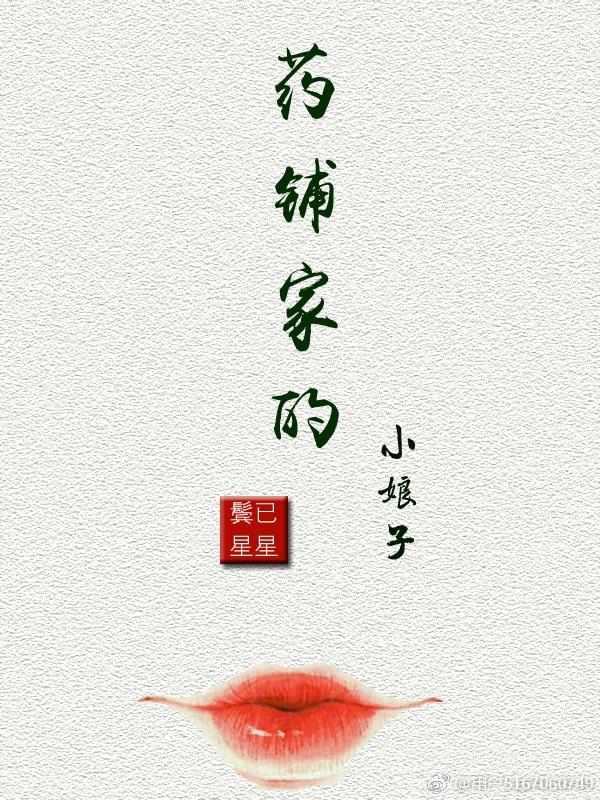 药铺家的
小娘子
鬓已
星星
@用户5167060749